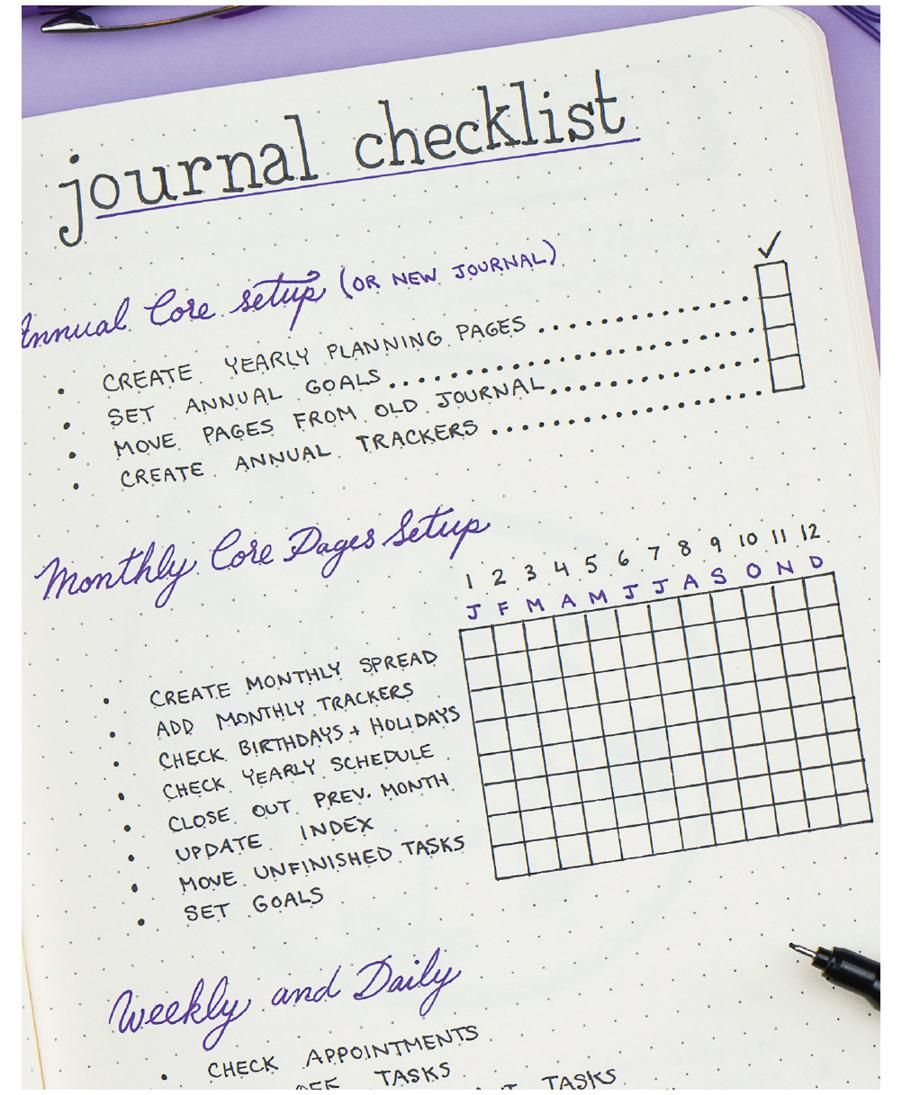 journal checklist
Annual Core setup (OR NEW JOURNAL)
✓
• CREATE YEARLY PLANNING PAGES
• SET ANNUAL GOALS
• MOVE PAGES FROM OLD JOURNAL
• CREATE ANNUAL TRACKERS
Monthly Core Pages Setup
1 2 3 4 5 6 7 8 9 10 11 12
J F M A M J J A S O N D
• CREATE MONTHLY SPREAD
• ADD MONTHLY TRACKERS
• CHECK BIRTHDAYS + HOLIDAYS
• CHECK YEARLY SCHEDULE
• CLOSE OUT PREV. MONTH
• UPDATE INDEX
• MOVE UNFINISHED TASKS
• SET GOALS
Weekly and Daily
• CHECK APPOINTMENTS
TASKS
TASKS